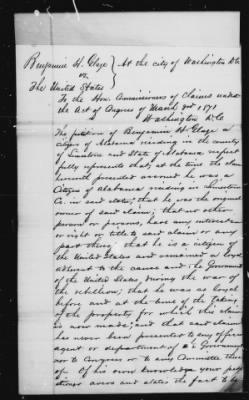 Benjamin H. Glaze } At the city of Washington D.C.
vs.
The United States
To the Hon. Commissioners of Claims under
the Act of Congress of March 3rd 1871
Washington D.C.
The petition of Benjamin H. Glaze a
citizen of Alabama residing in the county
of and State of Alabama respect
fully represents that, at the time the claim
herewith presented accrued he was a
Citizen of Alabama residing in Limestone
Co. in said state; that he was the original
owner of said claim; that no other
person or persons, have any interest
or right or title to said claim or any
part thereof; that he is a citizen of
the United States and remained a loyal
adherent to the cause and the Government
of the United States, during the war of
the rebellion; that he was as loyal
before and at the time of the taking
of the property for which this claim
is now made; and that said claim
has never been presented to any officer
agent or department of the Government
nor to Congress or to any Committee there
of. Of his own knowledge your peti
tioner avers and states the fact to be